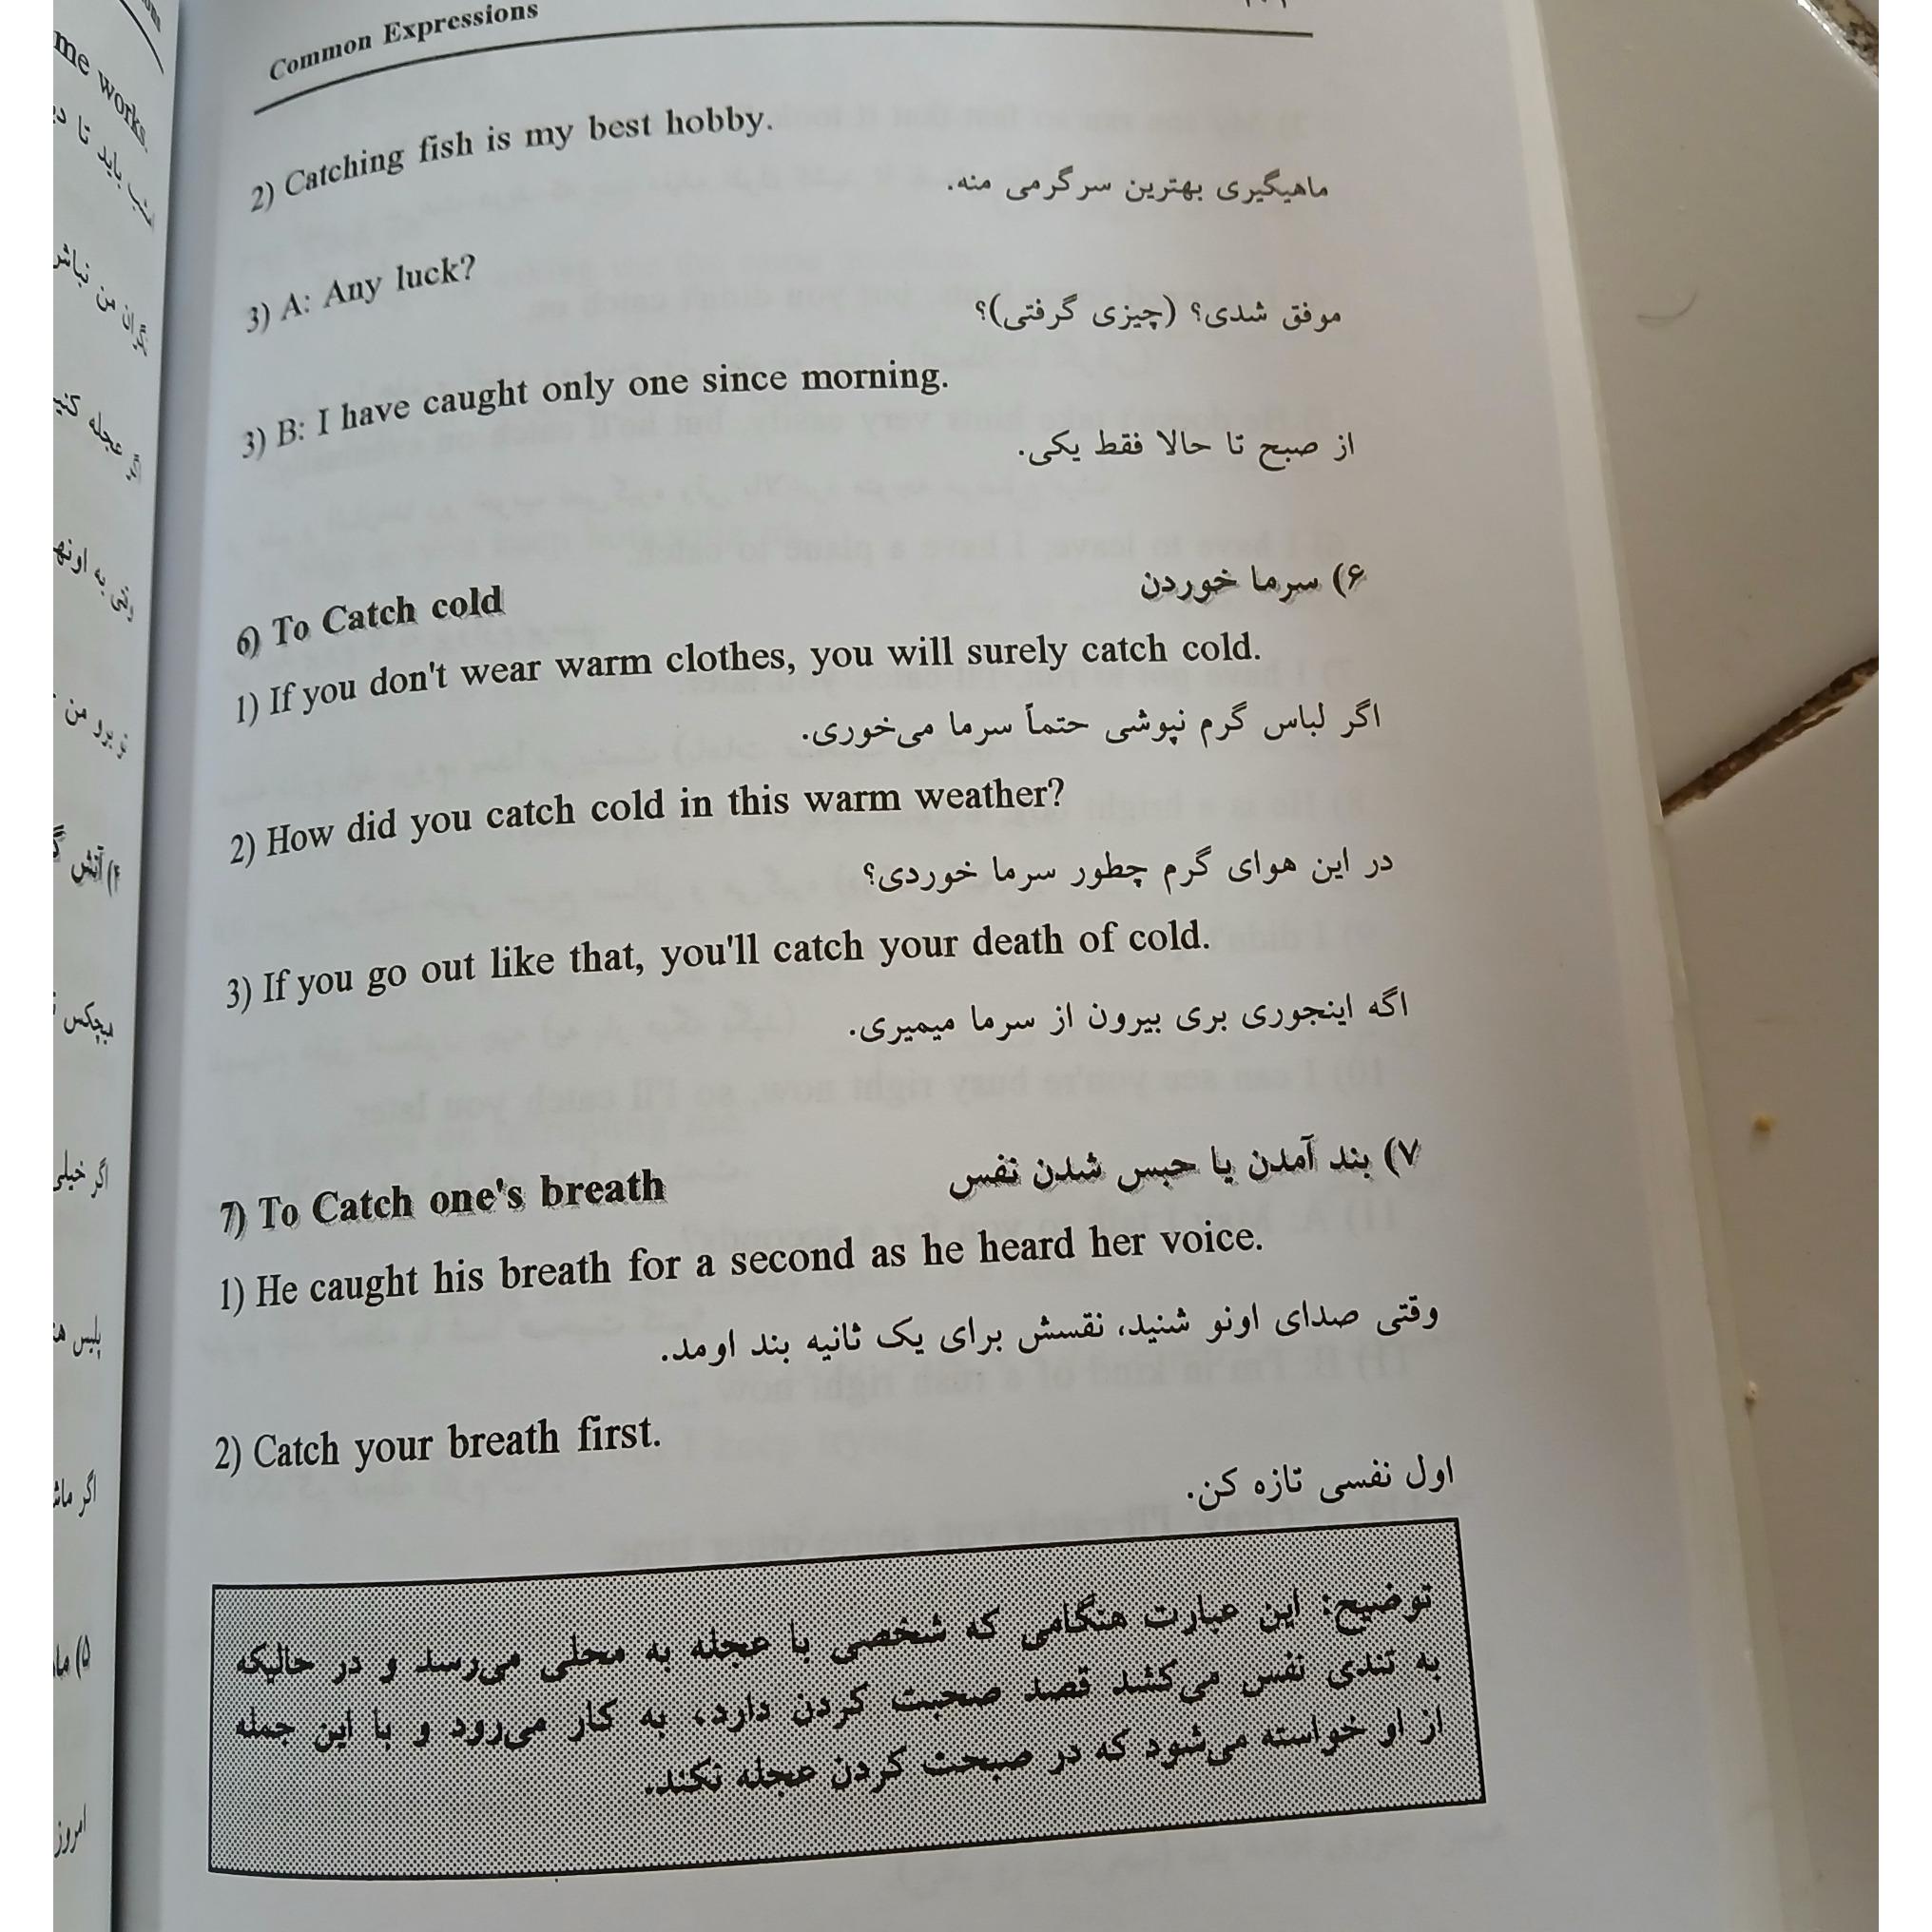 me works.
باید تا
Common Expressions
2) Catching fish is my best hobby.
ماهیگیری بهترین سرگرمی منه.
3) A: Any luck?
موفق شدی؟ (چیزی گرفتی)؟
3) B: I have caught only one since morning.
از صبح تا حالا فقط یکی.
6) To Catch cold
۶) سرما خوردن
1) If you don't wear warm clothes, you will surely catch cold.
اگر لباس گرم نپوشی حتماً سرما می‌خوری.
2) How did you catch cold in this warm weather?
در این هوای گرم چطور سرما خوردی؟
3) If you go out like that, you'll catch your death of cold.
اگه اینجوری بری بیرون از سرما میمیری.
7) To Catch one's breath
۷) بند آمدن یا حبس شدن نفس
1) He caught his breath for a second as he heard her voice.
وقتی صدای اونو شنید، نقسش برای یک ثانیه بند اومد.
2) Catch your breath first.
اول نفسی تازه کن.
توضیح: این عبارت هنگامی که شخصی با عجله به محلی می‌رسد و در حالیکه
به تندی نفس می‌کشد قصد صحبت کردن دارد، به کار می‌رود و با این جمله
از او خواسته می‌شود که در صبحت کردن عجله نکند.
نگران من نباش
اگر عجله کنی
وقتی به اونها
تو برو من
۴) آتش
هیچکس
اگر خیلی
پلیس
اگر
۵)
امروز